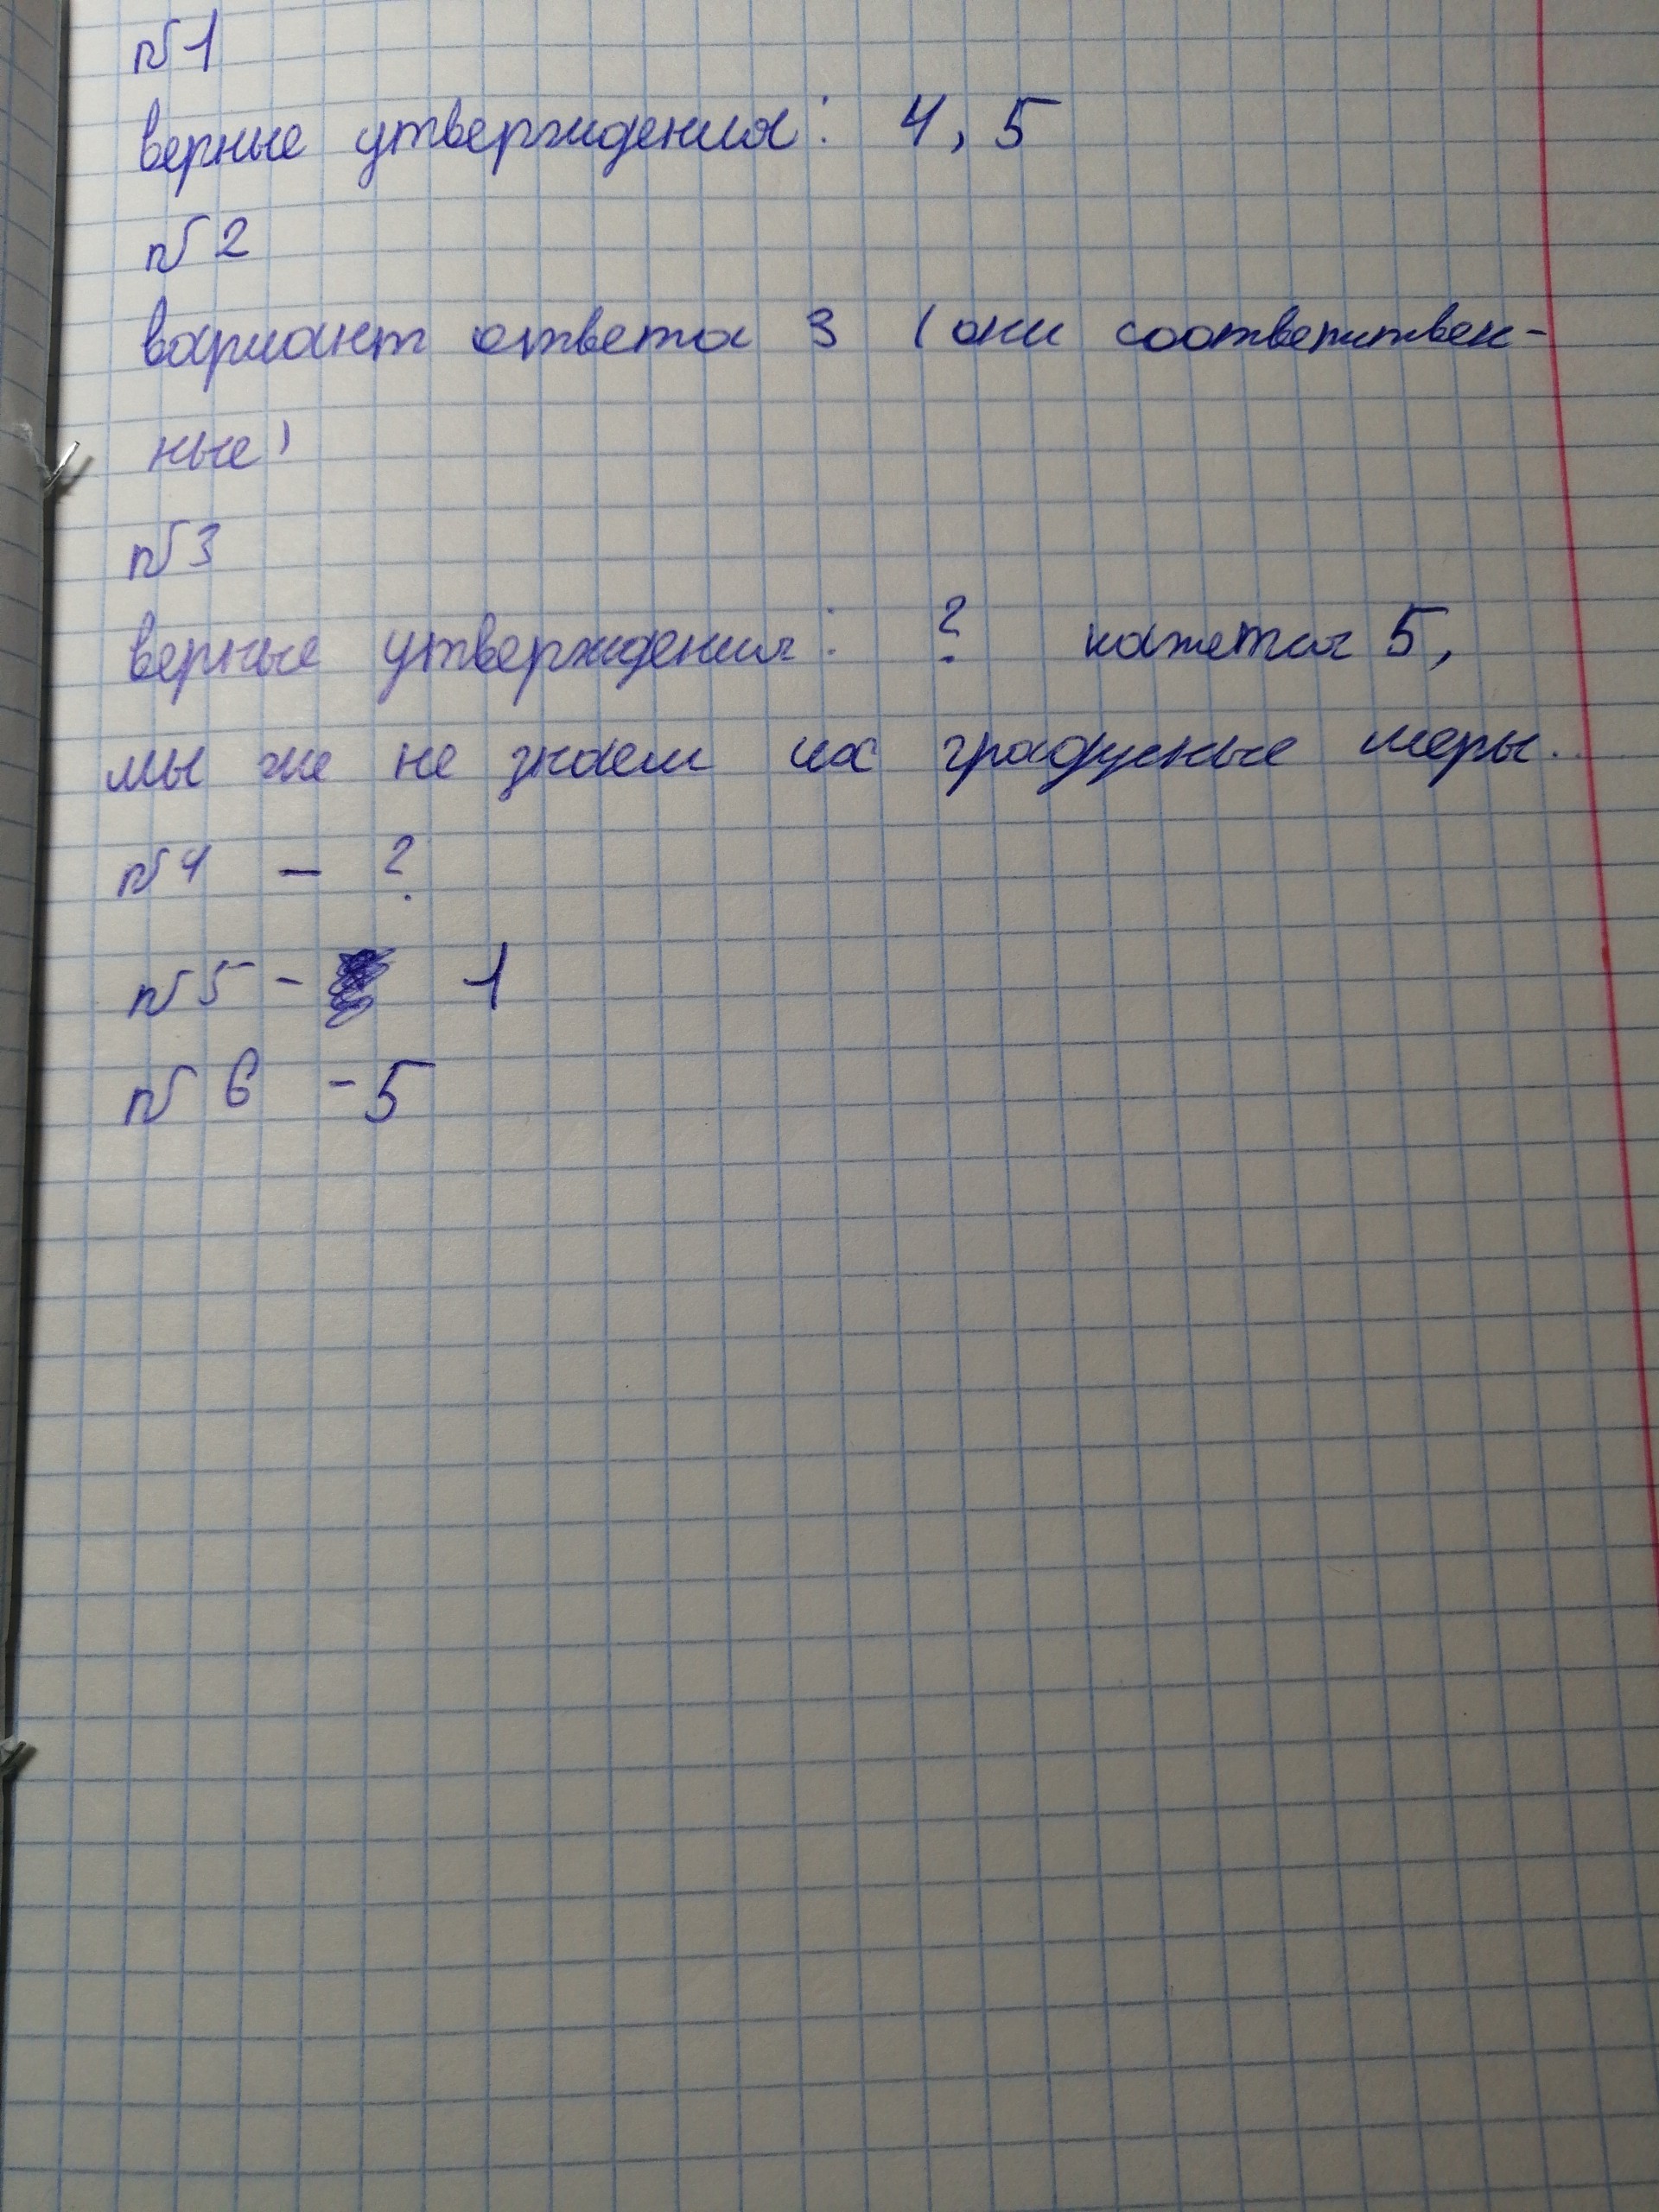 №1
верные утверждения: 4, 5
№2
вариант ответа 3 (они соответствен-
ные)
№3
верные утверждения: ? кажется 5,
мы же не знаем их градусные меры.
№4 – ?
№5 - 1
№6 - 5